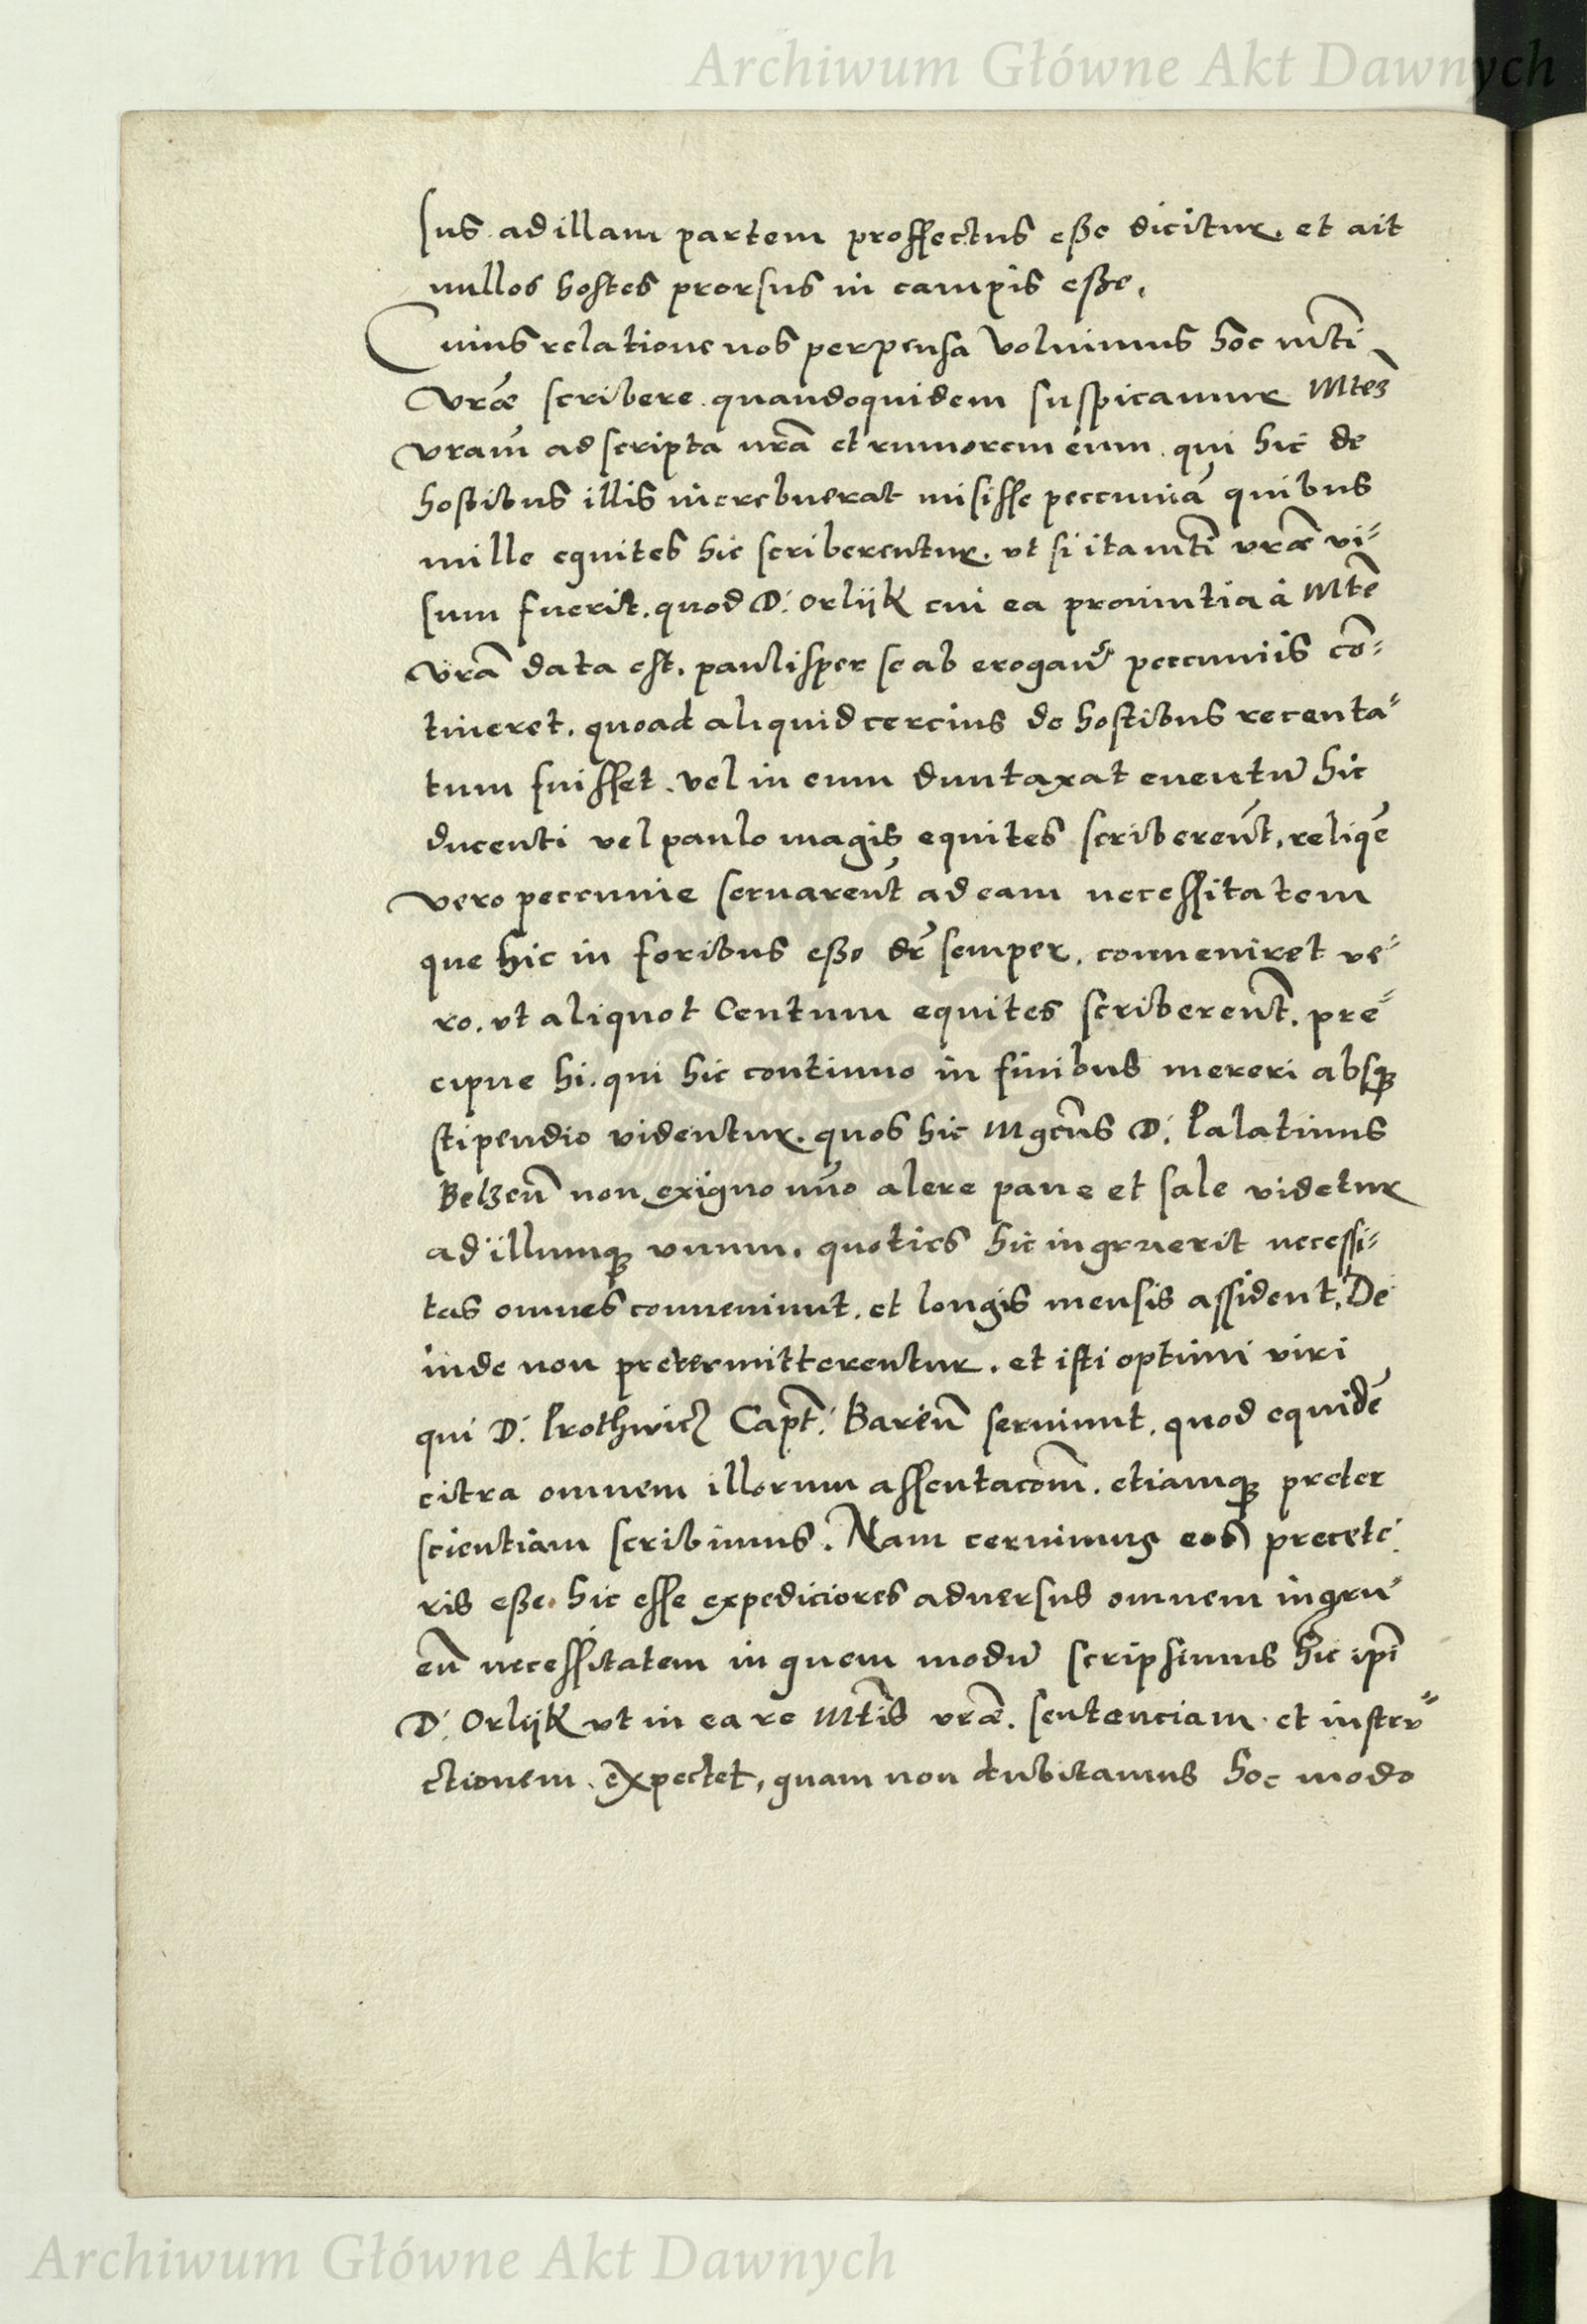 Archiwum Główne Akt Dawnych
sus ad illam partem proffectus esse dicitur, et ait
nullos hostes prorsus in campis esse.
Cuius relatione nos perpensa voluimus hoc mti
vrae scribere quandoquidem suspicamur Mtez
vram̄ ad scripta nrā et rumorem eum qui hic de
hostibus illis increbuerat misisse peccuniā quibus
mille equites hic scriberentur. vt si ita mti vrae vi=
sum fuerit. quod D: orlijk cui ea prouintia à Mte
vrā data est, paulisper se ab erogan̄ peccuniis cō=
tineret, quoad aliquid cercius de hostibus recenta=
tum fuisset. vel in eum duntaxat euentū hic
ducenti vel paulo magis equites scriberen̄t, reliqē
vero peccunie seruaren̄t ad eam necessitatem
que hic in foribus esse dr̄ semper. conueniret ve=
ro. vt aliquot Centum equites scriberen̄t. pre=
cipue hi. qui hic continuo in finibus mereri absq3
stipendio videntur. quos hic Mgcūs D: Palatinus
Belzen̄ non exiguo nūo alere pane et sale videtur
ad illumq3 vnum. quoties hic ingruerit necessi=
tas omnes conueniunt. et longis mensis assident, De
inde non pretermitterentur. et isti optimi viri
qui D: Prothwicz Capt: Baren̄ seruiunt, quod equidē
citra omnem illorum assentacōm. etiamq3 preter
scientiam scribimus. Nam cernimus eos precete:
ris esse. hic esse expediciores aduersus omnem ingru=
en̄ necessitatem in quem modū scripsimus hic ipi
D: Orlijk vt in ea re Mtis vrae. sentenciam et instru=
ctionem. expectet, quam non dubitamus hoc modo
Archiwum Główne Akt Dawnych